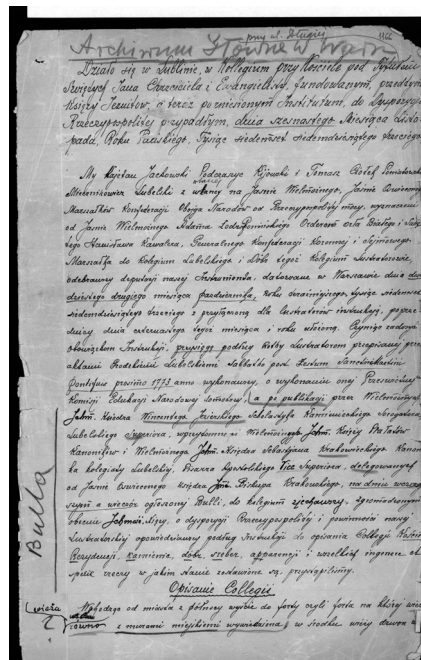 przy ul. Długiej
Archiwum Główne w Warsz.
Działo się w Lublinie, w Kollegium przy Kościele pod Tytułem
Świętych Jana Chrzciciela i Ewangelisty, fundowanym, przedtym
Księży Jezuitów, a teraz po zniesionym Instytucie, do Dyspozycyi
Rzeczypospolitej przypadłym, dnia szesnastego Miesiąca Listo-
pada, Roku Pańskiego, Tysiąc siedemset siedemdziesiątego trzeciego
My Kajetan Jackowski Podczaszy Kijowski i Tomasz
Lubelski z
Marszałków Konfederacji Obojga Narodów od Rzeczypospolitej mocy, wyznaczeni
od Jaśnie Wielmożnego Adama Łodzi Ponińskiego Orderów Orła Białego i Świę-
tego Stanisława Kawalera, Generalnego Konfederacji Koronnej i Sejmowego
Marszałka do Kolegium Lubelskiego i Dóbr tegoż Kolegium Lustratorowie,
odebrawszy deputacji naszej Instrumenta, datowane w Warszawie dnia dwu-
dziestego drugiego miesiąca października, roku teraźniejszego, tysiąc siedemset
siedemdziesiątego trzeciego z przyłączoną dla Lustratorów instrukcją, poprze-
dniczy dnia czternastego tegoż miesiąca i roku
obowiązkom Instrukcji, przysięgę podług Roty Lustratorom przepisanej przed
aktami Grodzkiemi Lubelskiemi Sabbatho post Festum
Pontificis proximo 1773 anno wykonawszy, o wykonaniu onej Prześwietnej
Komisji Edukacji Narodowej a po publikacji przez Wielmożnych
Jchm. Księdza Wincentego Jezierskiego Scholastyka Kamienieckiego Surogatora
Lubelskiego Superiora, w przytomności Wielmożnych Jchm. Księży Prałatów
Kanoników i Wielmożnego Jchm. Księdza Sebastjana Krakowieckiego Kanoni-
ka kolegiaty Lubelskiej, Pisarza Apostolskiego Vice Superiora, delegowanych
od Jaśnie Oświeconego Księdza Jmci Biskupa Krakowskiego, na dniu wczoraj-
szym a wieczór ogłoszonej Bulli, do kolegium zjechawszy, zgromadzonym
obecnie Jchmość Xięży, o dyspozycji Rzeczypospolitej i powinności naszej
Lustratorskiej opowiedziawszy podług Instrukcji do opisania Collegii Kościoła
Rezydencji, kamienic, dóbr, sreber, apparencji i wszelkich ingenere et
specie rzeczy w jakim stanie zostawione są, przystąpiliśmy.
Bulla
Opisanie Collegii
wieża
Wchodząc od miasta z północy wyjście do forty czyli forta na kształt wieży
równo z murami miejskiemi wywiedziona w środku wieży drzwi